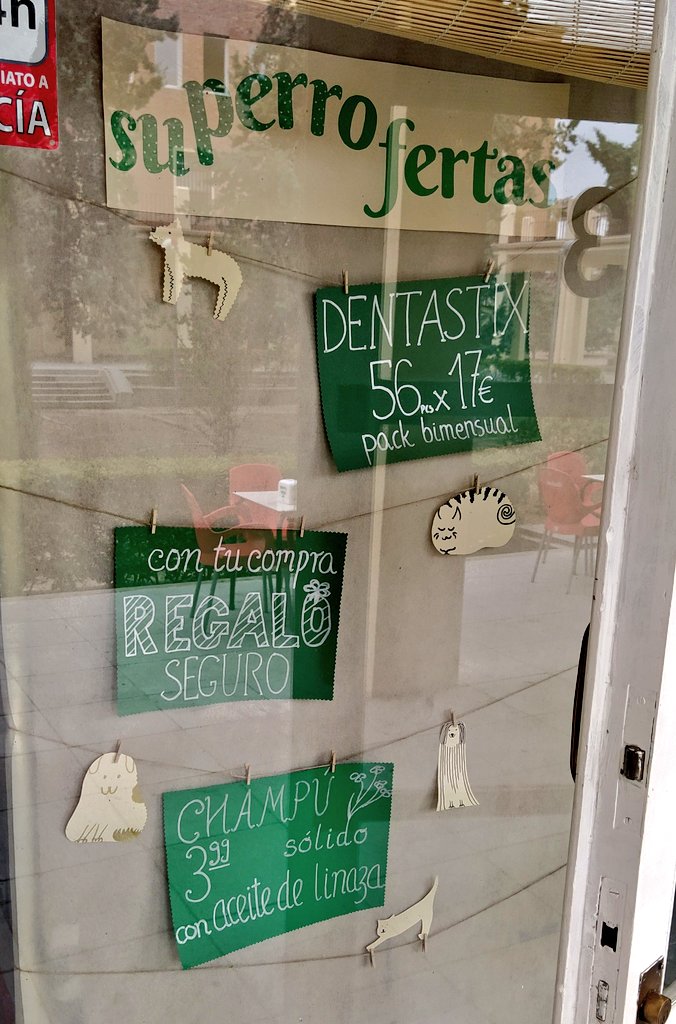 4h
IATO A
CÍA
superrofertas
3
DENTASTIX
56 pcs x 17€
pack bimensual
con tu compra
REGALO
SEGURO
CHAMPÚ
3,99 sólido
con aceite de linaza